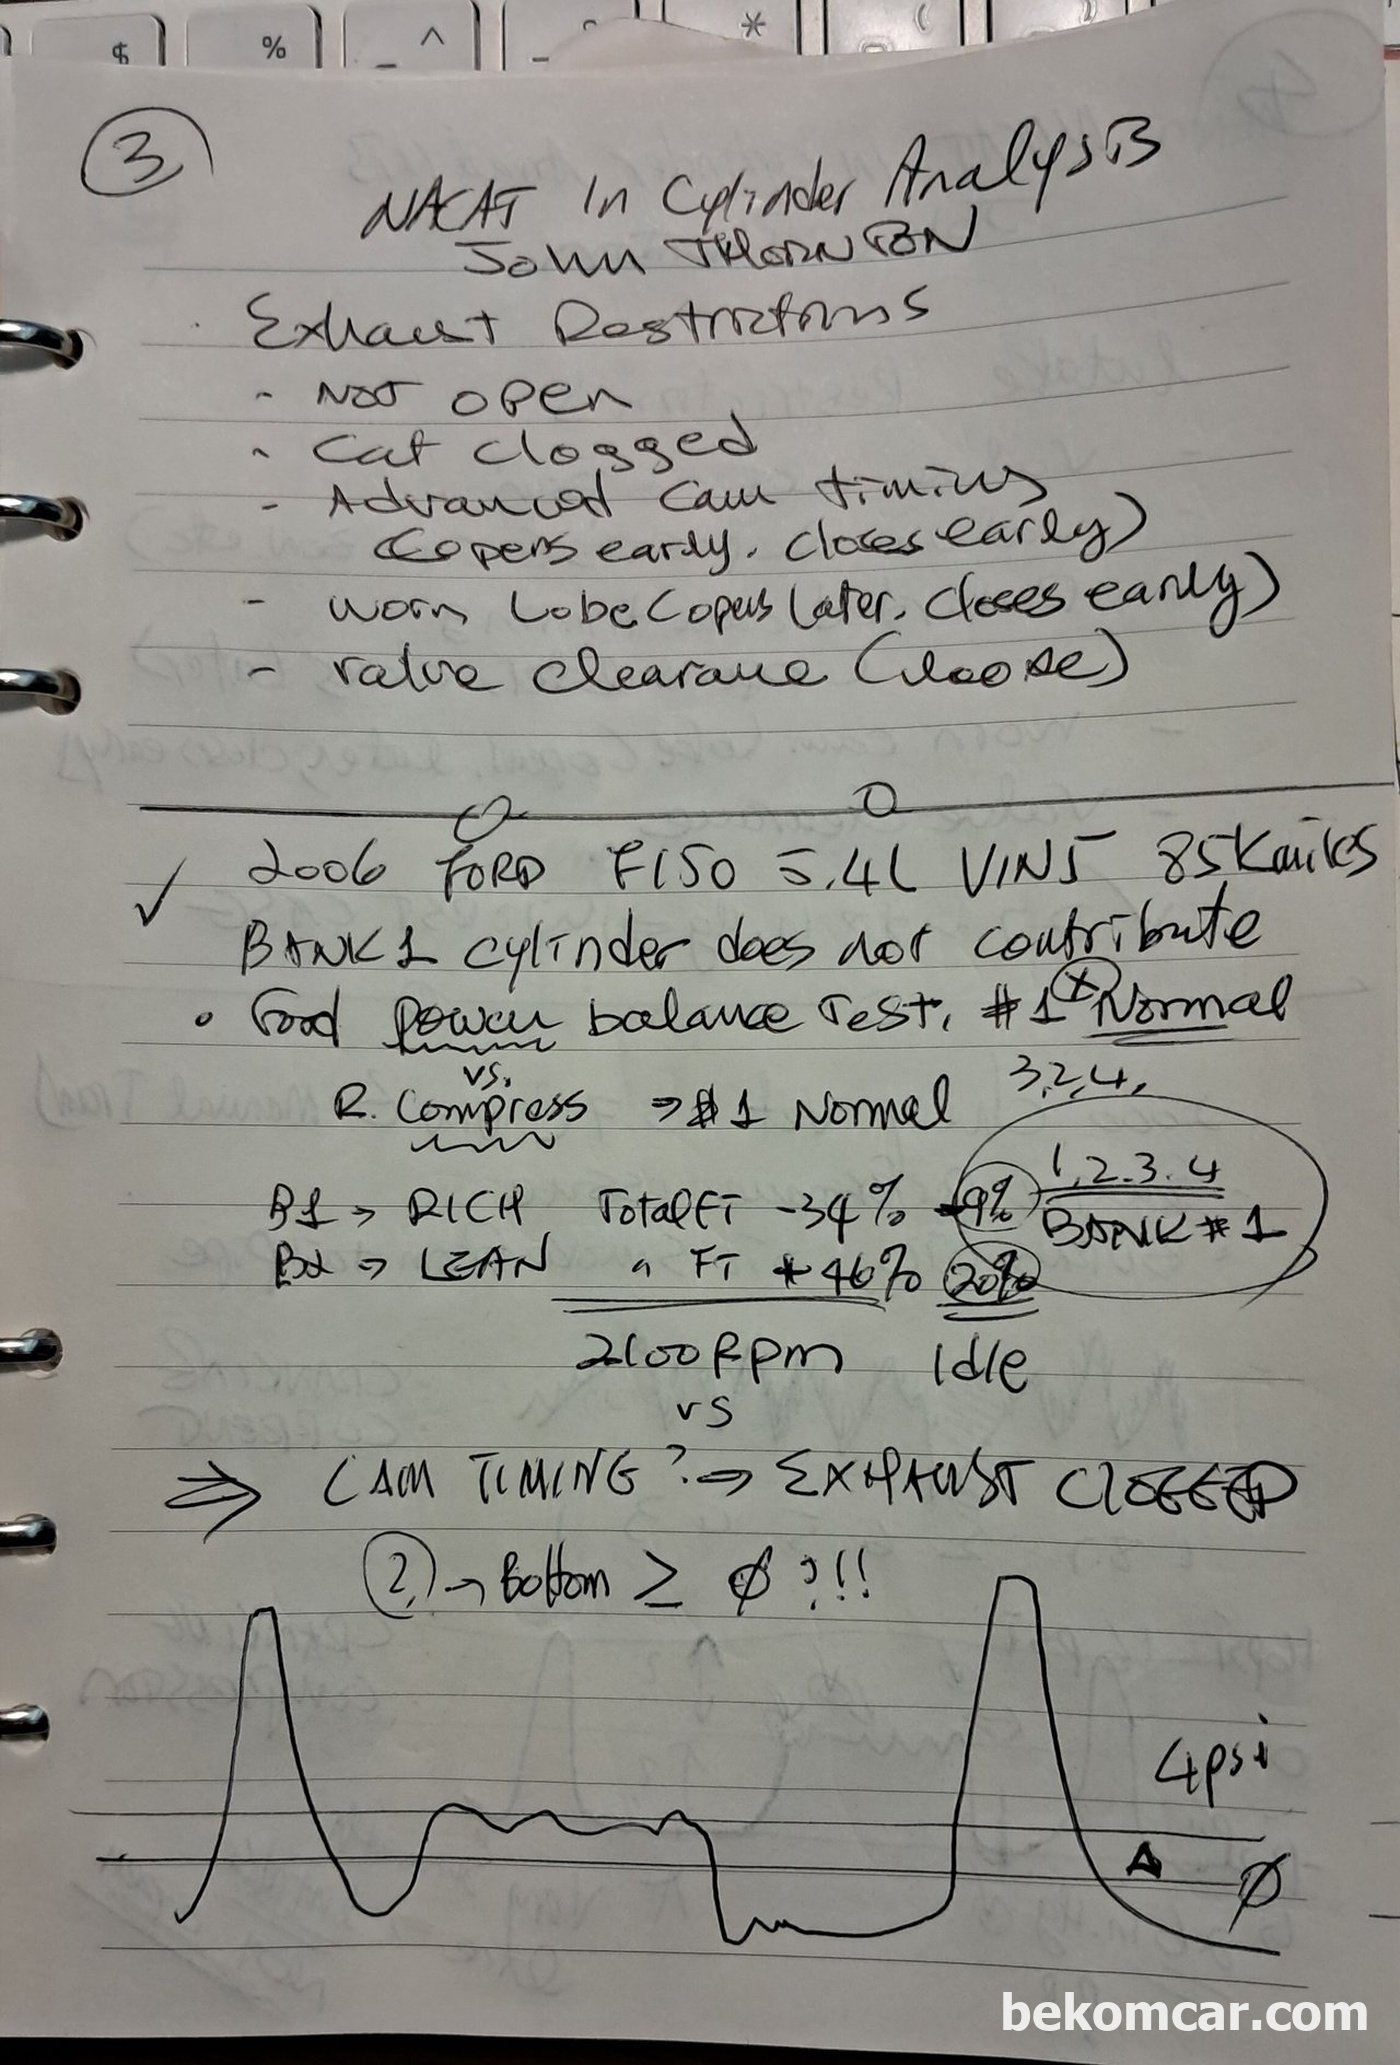 $ % ^ * (
3
NACAT In Cylinder Analysis
John THORNTON
Exhaust Restrictions
- Not open
- Cat clogged
- Advanced Cam timing
(opens early, closes early)
- worn Lobe (opens later, closes early)
- valve clearance (loose)
✓ 2006 FORD F150 5.4L VIN5 85K miles
BANK1 cylinder does not contribute
• Ford power balance Test, #1 Normal
vs. 3,2,4,
R. Compress ⇒ #1 Normal
1,2.3.4
B1 → RICH Total FT -34% -9% BANK #1
B2 ⇒ LEAN " FT +46% 20%
2100 Rpm Idle
vs
⇒ CAM TIMING? ⇒ EXHAUST CLOGGED
2, → Bottom ≥ Ø ?!!
4psi
Ø
bekomcar.com